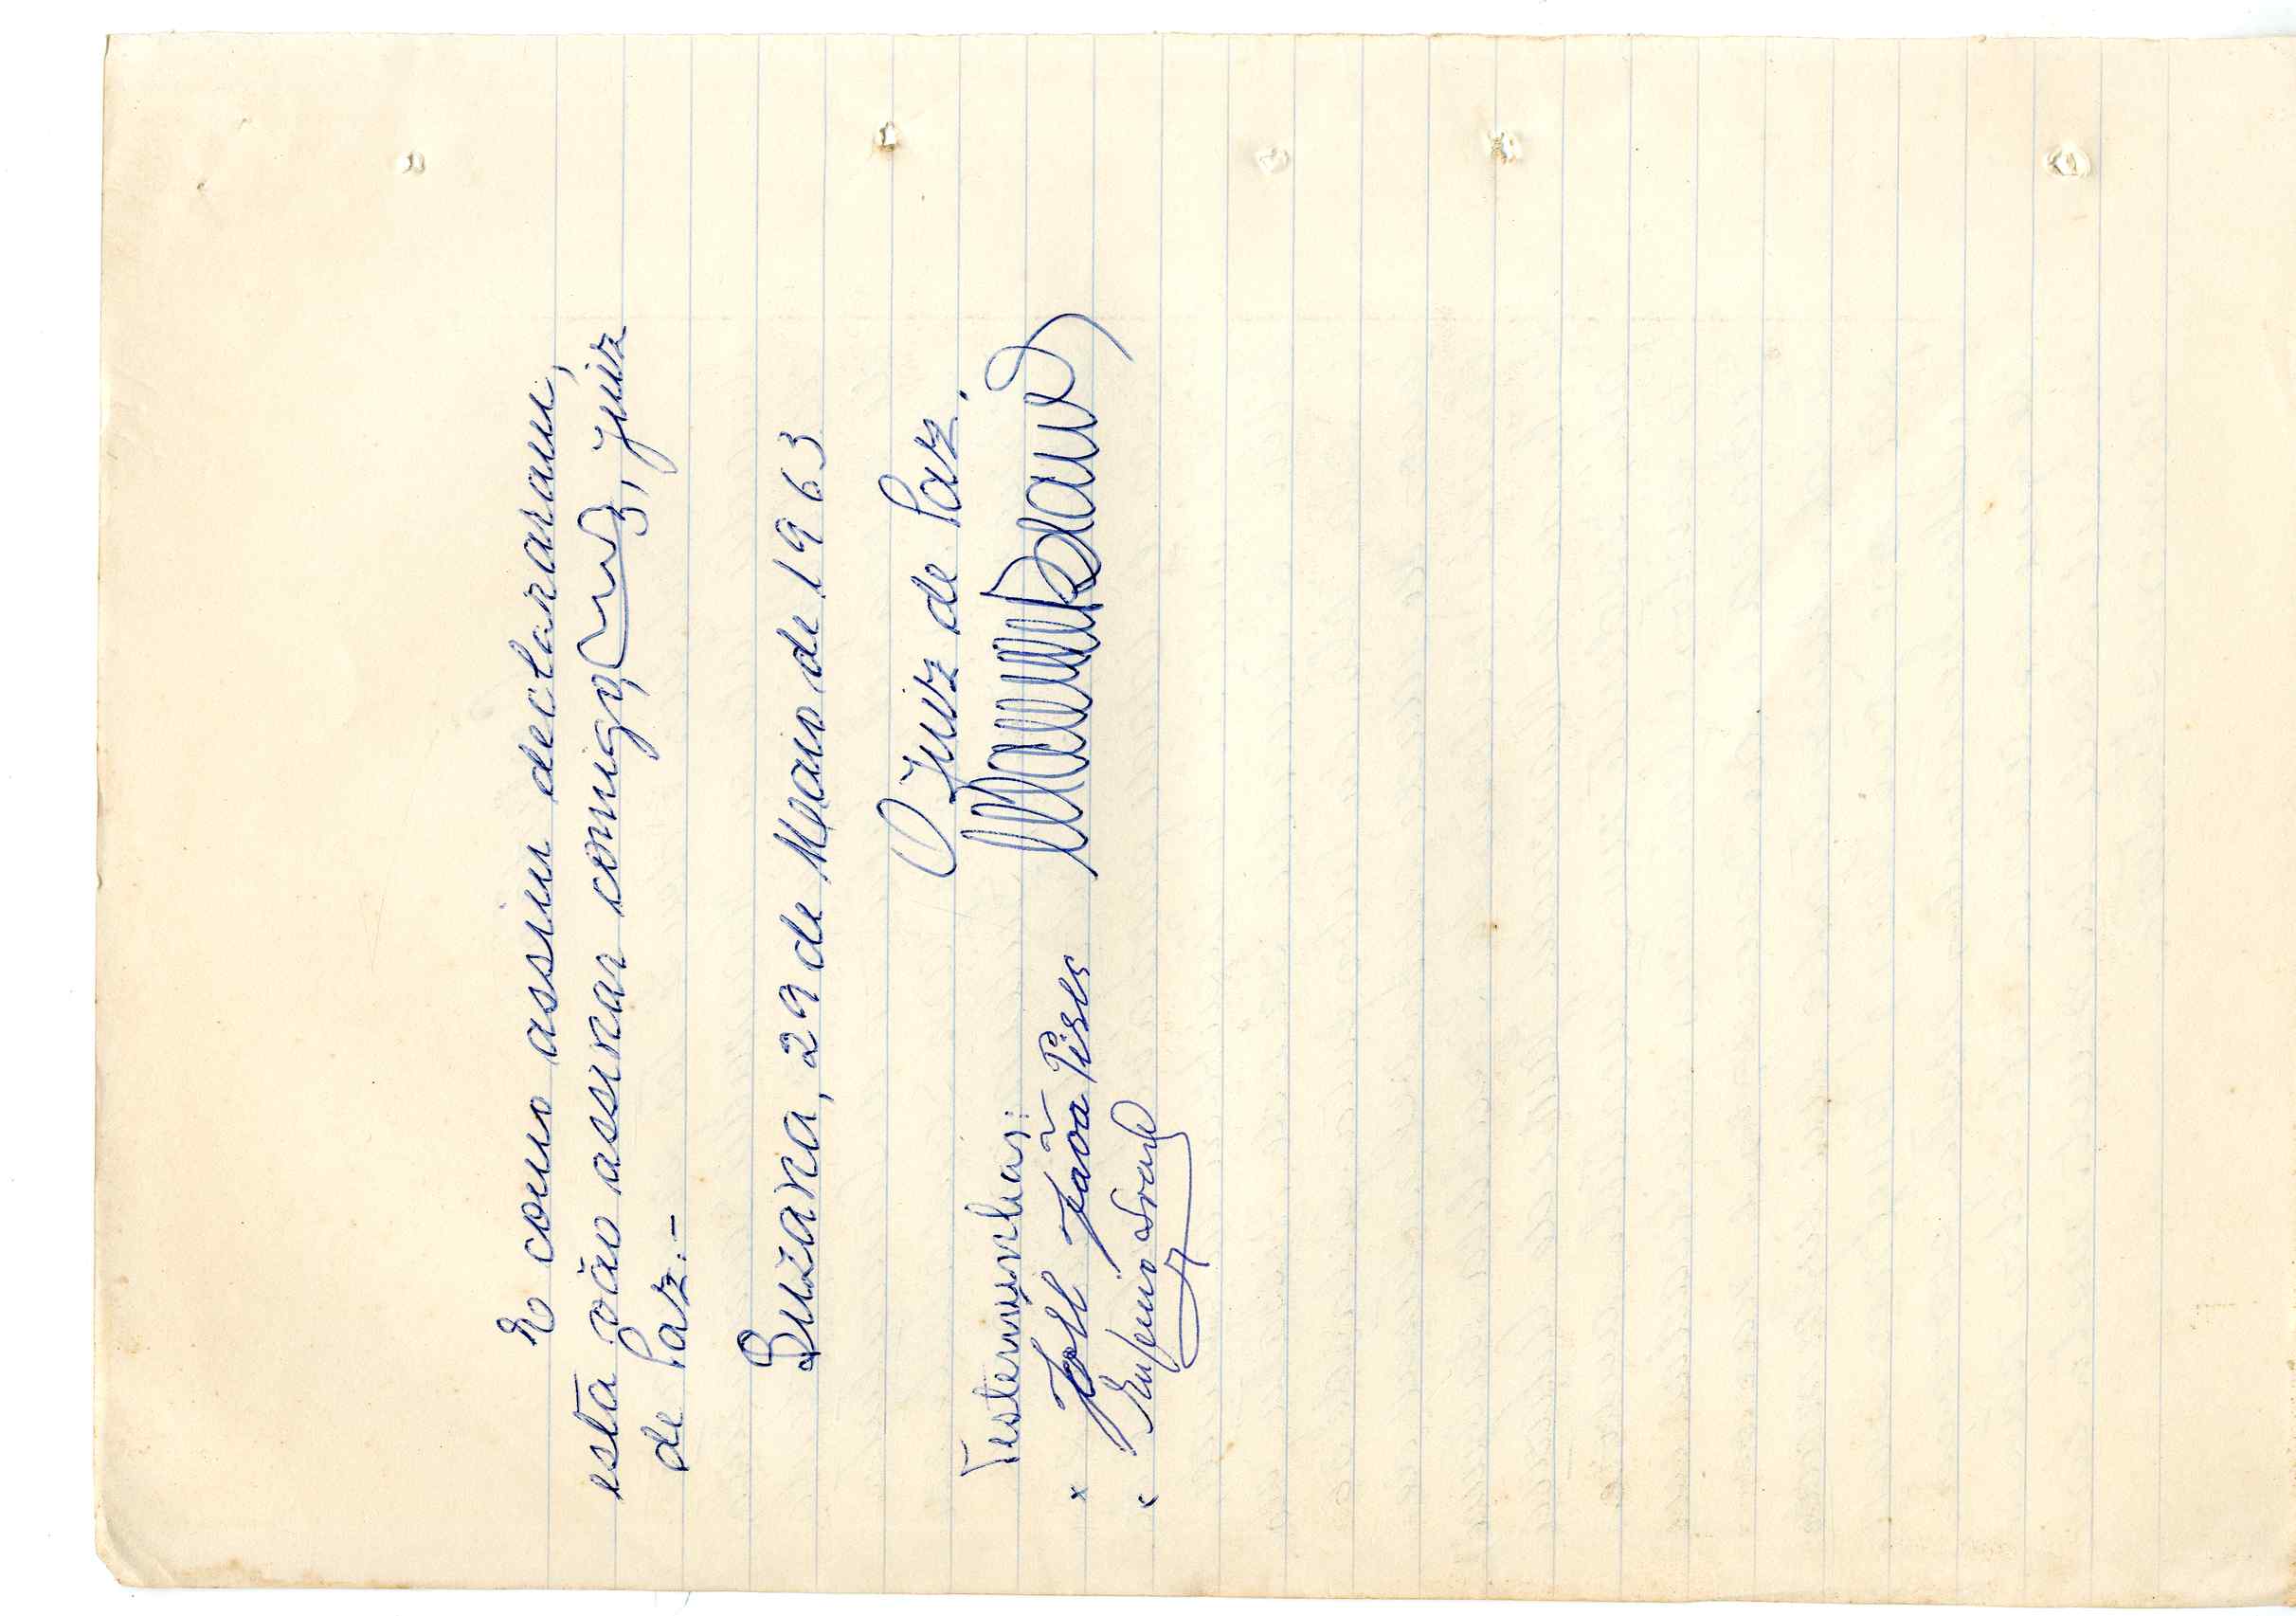 E como assim declararam,
esta vão assinar comigo, , Juiz
de Paz.-
Buzana, 29 de Maio de 1963
O Juiz de Paz,
Testemunhas:
x José João Pires
x Eugenio